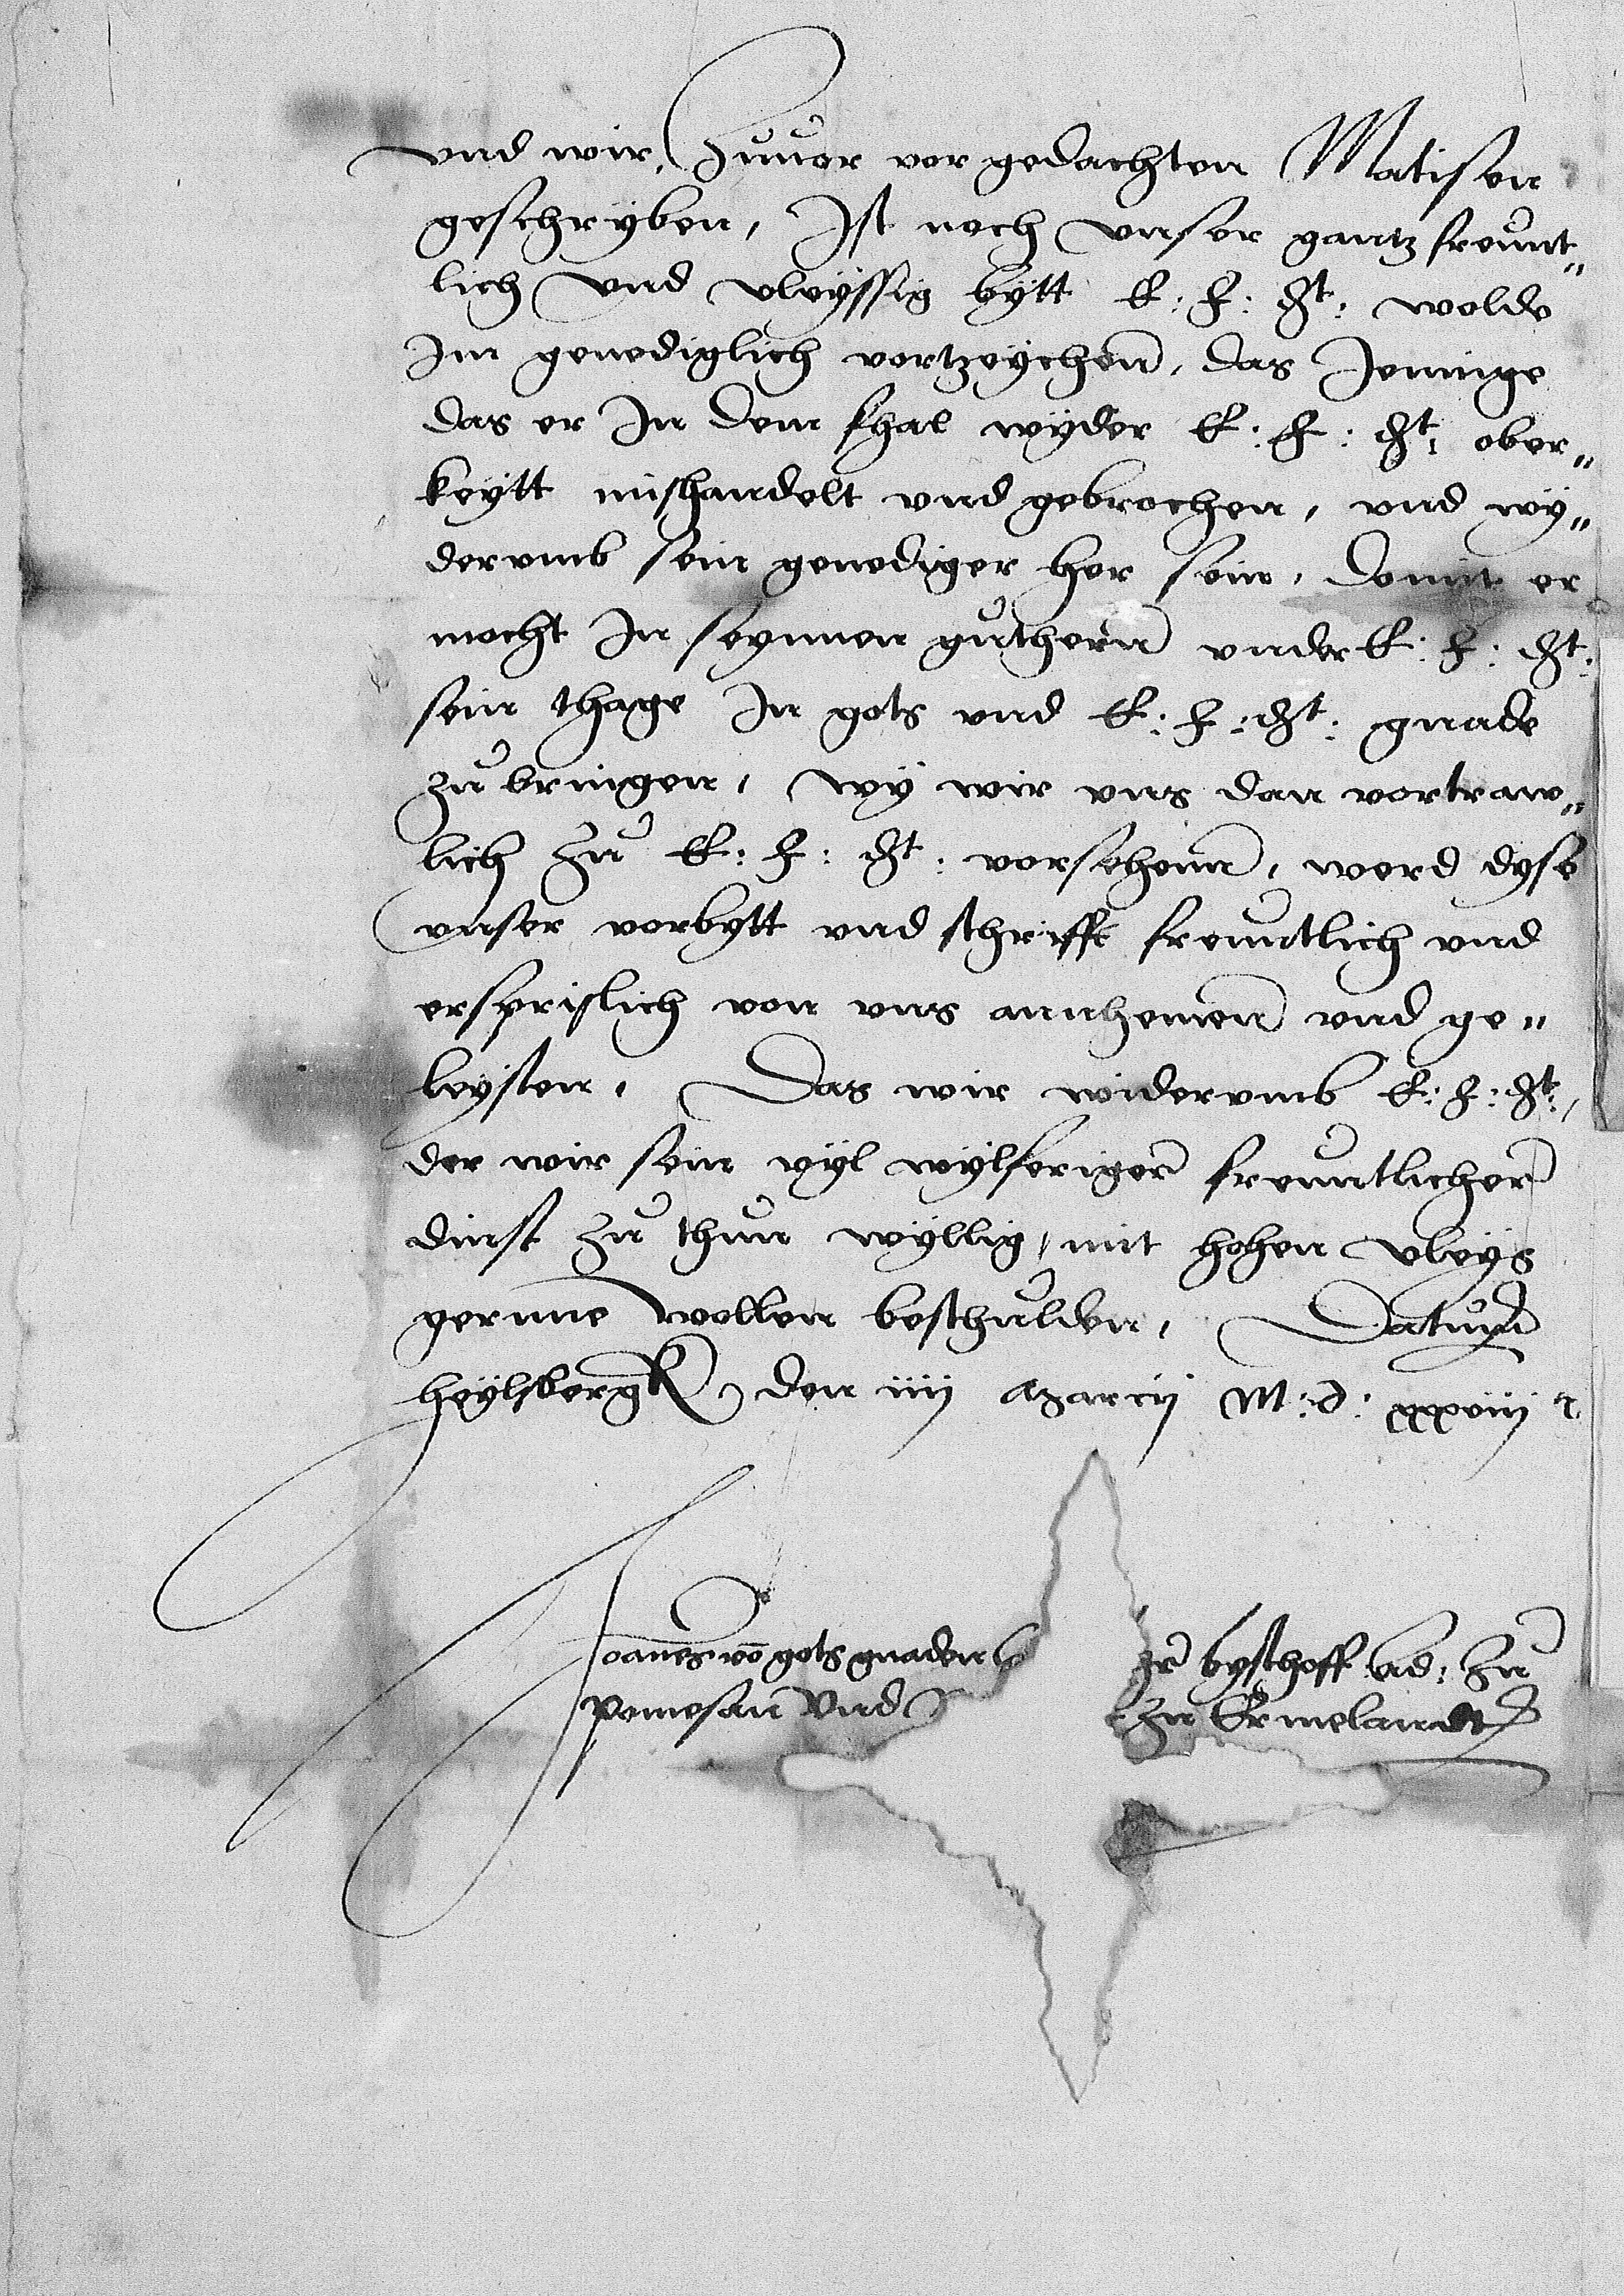 vnd wir, Zuuor vor gedachten Matisen
geschryben, Ist noch vnser gantz freunt„
lich vnd vleyssig bytt E: F: Dt: wolde
Im genediglich vortzeychenn, das Jennige
das er In dem fhal wyder E: F: Dt: ober„
keytt mishandelt vnd gebrochen, vnd wy„
dervmb sein genediger her sein, Domit er
mocht In seynnen guthern vnder E: F: Dt:
sein thage In gots vnd E: F: Dt: gnade
zu bringen, wy wir vns dan vortraw„
lich zu E: F: Dt: vorsehenn, werd dyse
vnser vorbytt vnd schrifft freuntlich vnd
ersprislich von vns annhemen vnd ge„
leysten, Das wir widervmb E: F: Dt:,
der wir sein vyl wylferiger freuntlicher
dinst zu thun wyllig, mit hohen vleys
gernne wollen beschulden, Datum
heylsbergk den iiij Marcij M: d: xxxviij
Joannes vo gots gnaden byschoff ad: zu
Pomesan Vnd zu Ermelandt